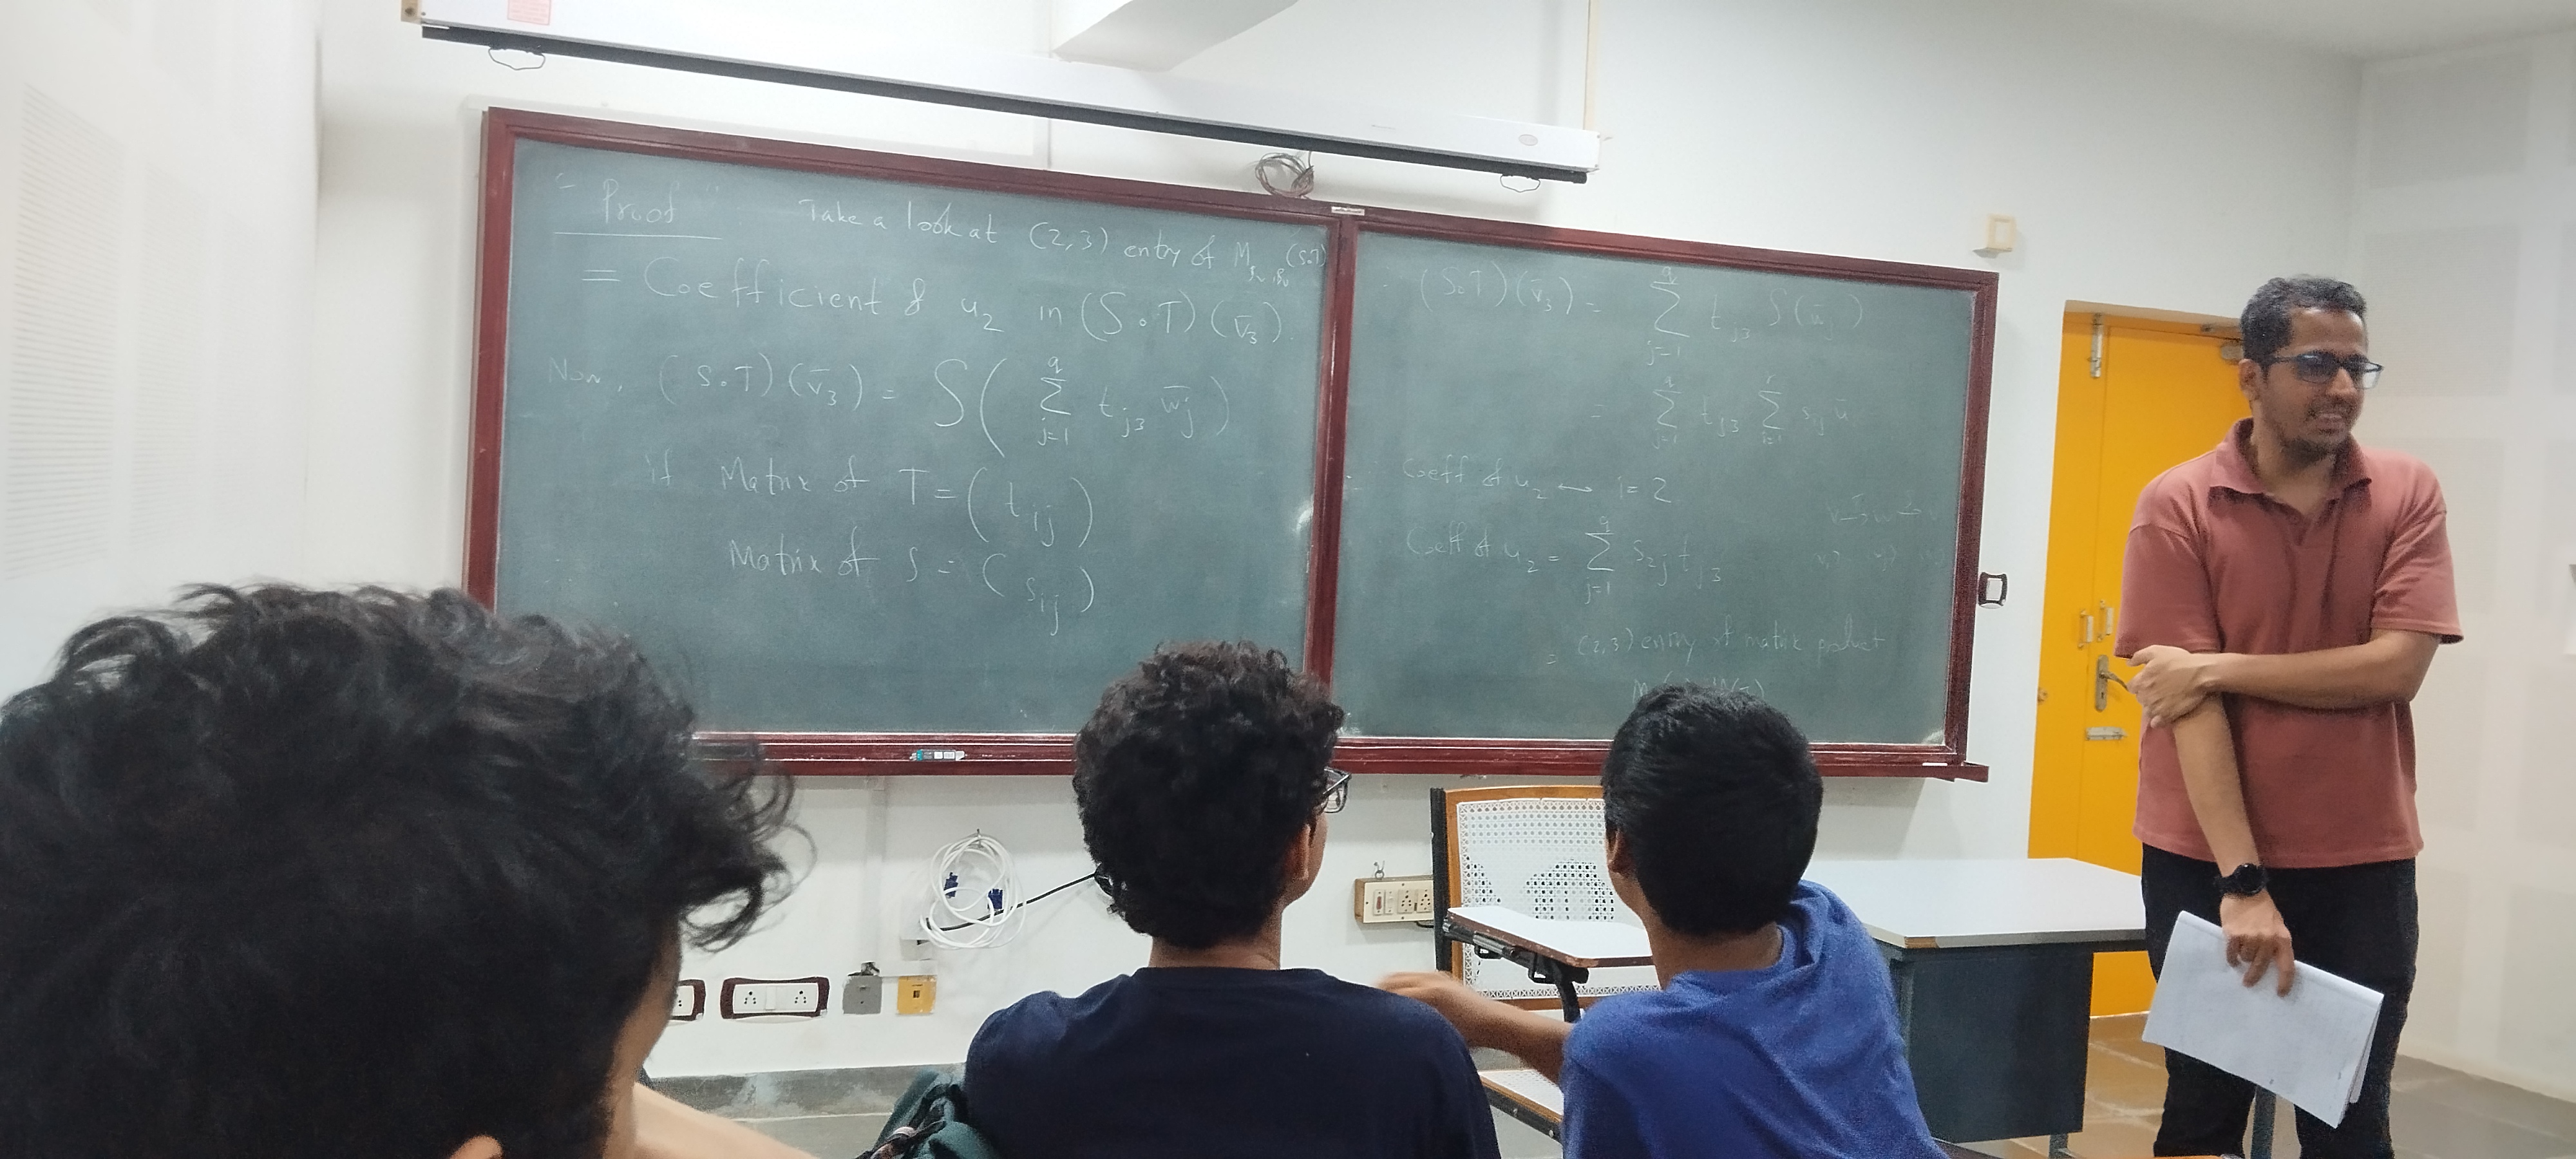 "Proof" Take a look at (2,3) entry of M (S∘T)
= Coefficient of u₂ in (S∘T)(v̄₃).
Now, (S∘T)(v̄₃) = S( ∑_{j=1}^{q} t_{j3} w̄_j )
if Matrix of T = (t_{ij})
Matrix of S = (s_{ij})
(S∘T)(v̄₃) = ∑_{j=1}^{q} t_{j3} S(w̄_j)
= ∑_{j=1}^{q} t_{j3} ∑_{i=1}^{r} s_{ij} ū
Coeff of u₂ ↔ i=2
Coeff of u₂ = ∑_{j=1}^{q} s_{2j} t_{j3}
= (2,3) entry of matrix product